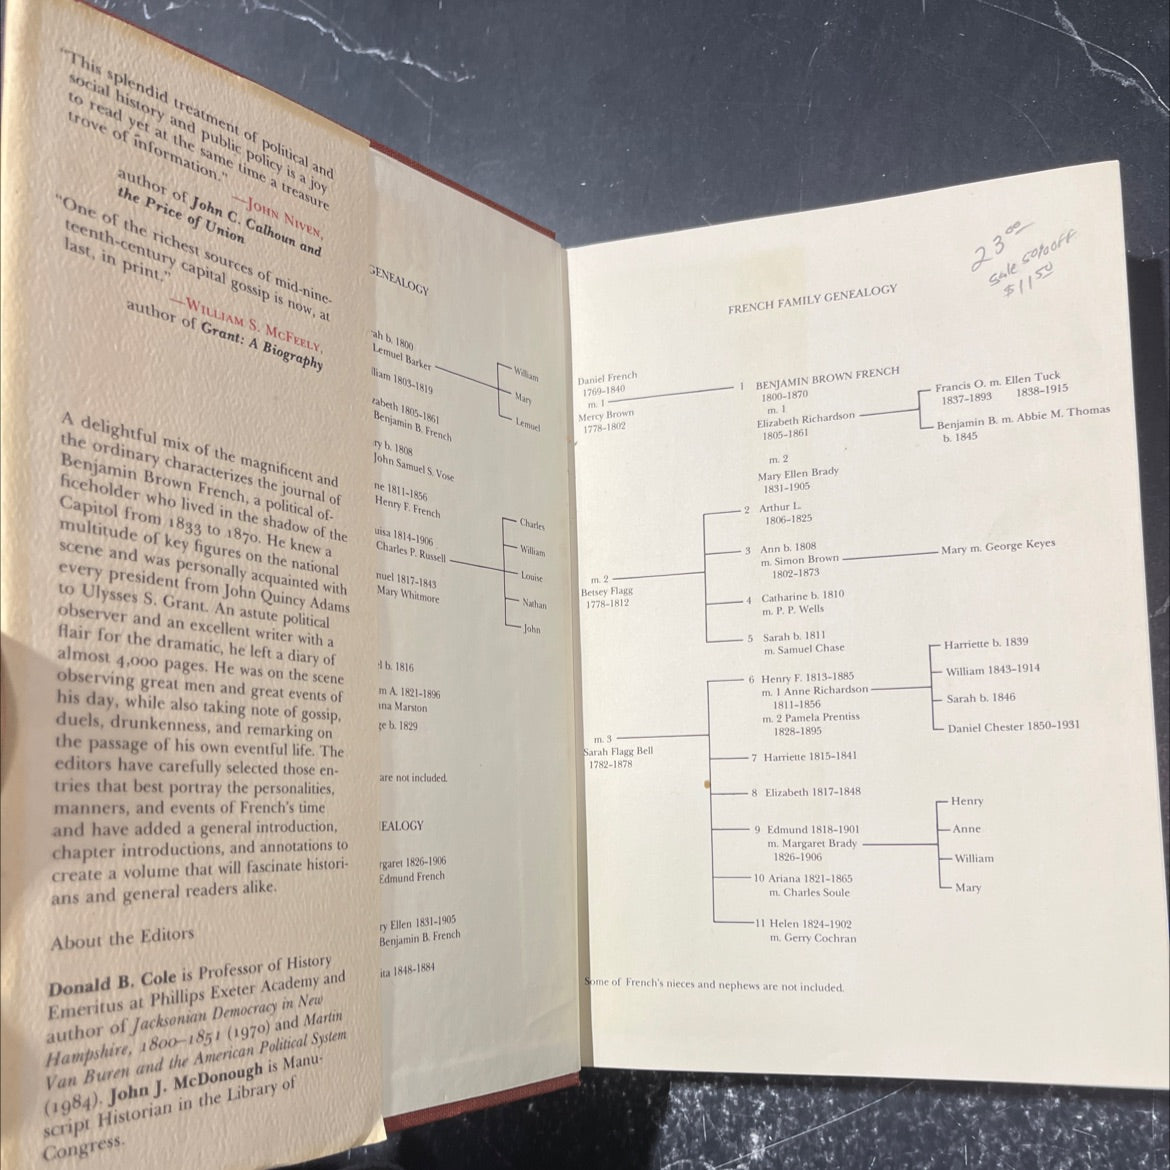 "This splendid treatment of political and
social history and public policy is a joy
to read yet at the same time a treasure
trove of information."
—JOHN NIVEN,
author of John C. Calhoun and
the Price of Union
"One of the richest sources of mid-nine-
teenth-century capital gossip is now, at
last, in print."
—WILLIAM S. MCFEELY,
author of Grant: A Biography
A delightful mix of the magnificent and
the ordinary characterizes the journal of
Benjamin Brown French, a political of-
ficeholder who lived in the shadow of the
Capitol from 1833 to 1870. He knew a
multitude of key figures on the national
scene and was personally acquainted with
every president from John Quincy Adams
to Ulysses S. Grant. An astute political
observer and an excellent writer with a
flair for the dramatic, he left a diary of
almost 4,000 pages. He was on the scene
observing great men and great events of
his day, while also taking note of gossip,
duels, drunkenness, and remarking on
the passage of his own eventful life. The
editors have carefully selected those en-
tries that best portray the personalities,
manners, and events of French's time
and have added a general introduction,
chapter introductions, and annotations to
create a volume that will fascinate histori-
ans and general readers alike.
About the Editors
Donald B. Cole is Professor of History
Emeritus at Phillips Exeter Academy and
author of Jacksonian Democracy in New
Hampshire, 1800–1851 (1970) and Martin
Van Buren and the American Political System
(1984). John J. McDonough is Manu-
script Historian in the Library of
Congress.
GENEALOGY
ah b. 1800
Lemuel Barker
William
Mary
Lemuel
liam 1803-1819
zabeth 1805-1861
Benjamin B. French
ry b. 1808
John Samuel S. Vose
ne 1811-1856
Henry F. French
uisa 1814-1906
Charles P. Russell
Charles
William
Louise
Nathan
John
nuel 1817-1843
Mary Whitmore
el b. 1816
m A. 1821-1896
ina Marston
ge b. 1829
are not included.
EALOGY
rgaret 1826-1906
Edmund French
ry Ellen 1831-1905
Benjamin B. French
ita 1848-1884
23 00
Sale 50% off
$11 50
FRENCH FAMILY GENEALOGY
Daniel French
1769-1840
m. 1
Mercy Brown
1778-1802
1 BENJAMIN BROWN FRENCH
1800-1870
m. 1
Elizabeth Richardson
1805-1861
Francis O. m. Ellen Tuck
1837-1893 1838-1915
Benjamin B. m. Abbie M. Thomas
b. 1845
m. 2
Mary Ellen Brady
1831-1905
m. 2
Betsey Flagg
1778-1812
2 Arthur L.
1806-1825
3 Ann b. 1808
m. Simon Brown
1802-1873
Mary m. George Keyes
4 Catharine b. 1810
m. P. P. Wells
5 Sarah b. 1811
m. Samuel Chase
m. 3
Sarah Flagg Bell
1782-1878
6 Henry F. 1813-1885
m. 1 Anne Richardson
1811-1856
m. 2 Pamela Prentiss
1828-1895
Harriette b. 1839
William 1843-1914
Sarah b. 1846
Daniel Chester 1850-1931
7 Harriette 1815-1841
8 Elizabeth 1817-1848
9 Edmund 1818-1901
m. Margaret Brady
1826-1906
Henry
Anne
William
Mary
10 Ariana 1821-1865
m. Charles Soule
11 Helen 1824-1902
m. Gerry Cochran
Some of French's nieces and nephews are not included.